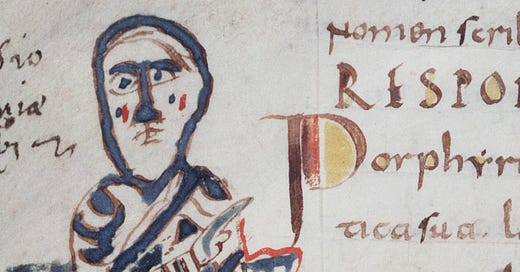 sio
niæ
nomen scrib
RESPO
Porphyr
ticasua. l